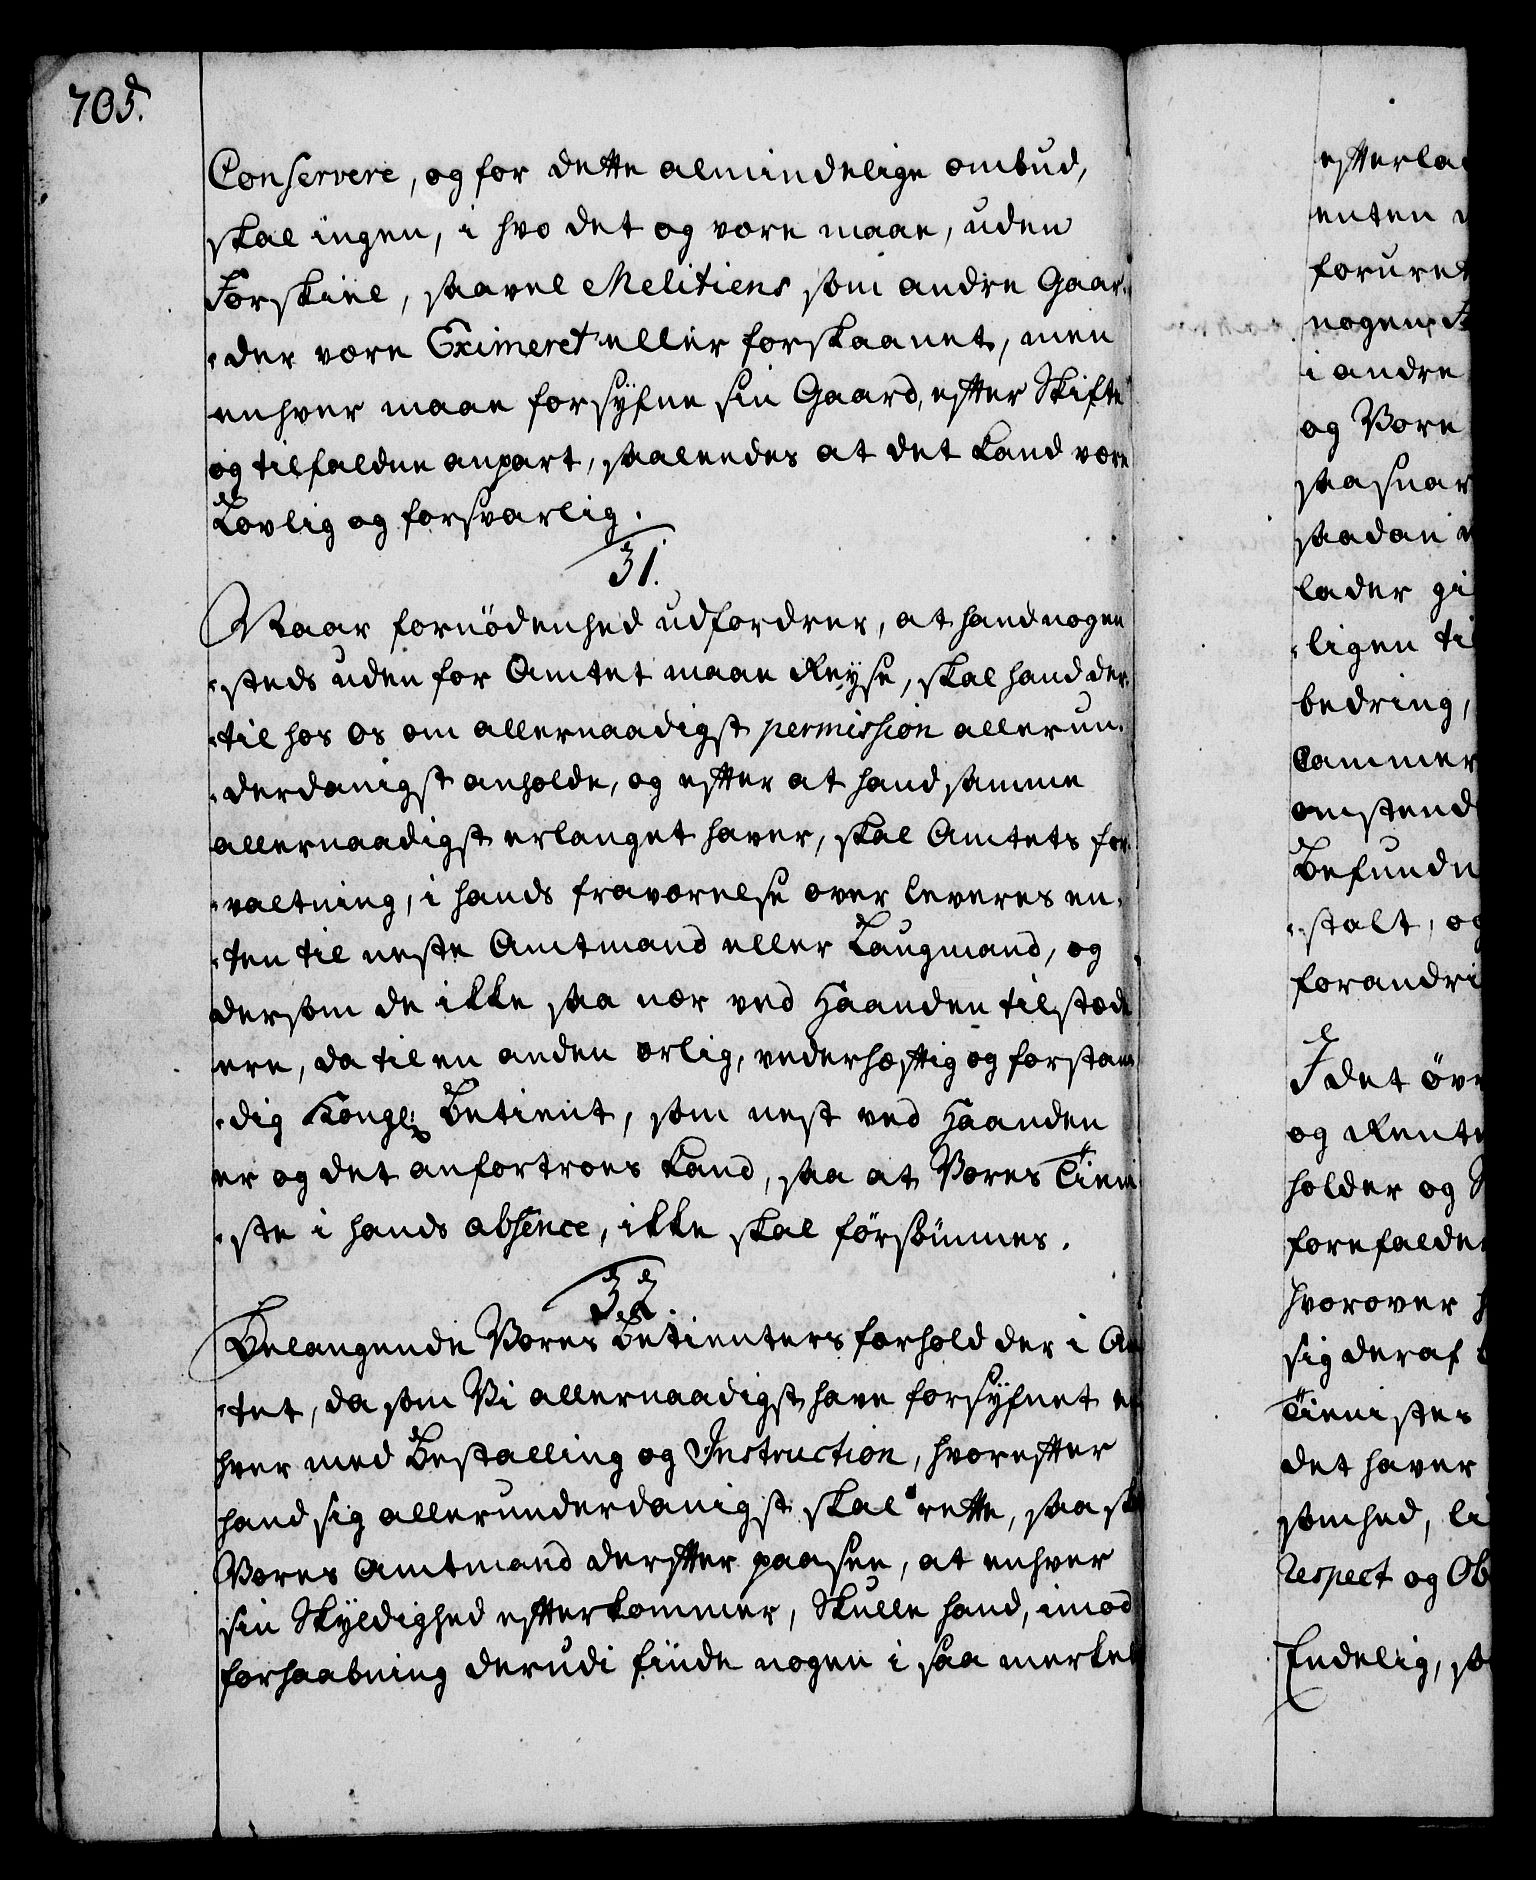 705.
Conservere, og for dette almindelige ombud,
skal ingen, i hvo det og være maae, uden
Forskiel, saavel Melitiens som andre Gaar-
-der være Eximeret eller forskaanet, men
enhver maae forsÿfne sin Gaard, efter Skifte
og tilfaldne anpart, saaleedes at det kand være
Lovlig og forsvarlig.
31.
Naar fornödenhed udfordrer, at hand nogen
-steds uden for Amtet maae Reÿse, skal hand der-
-til hos os om allernaadigst permission allerun-
-derdanigst anholde, og efter at hand samme
allernaadigst erlanget haver, skal Amtets for-
-valtning, i hands fraværelse over leveres en-
-ten til neste Amtmand eller Laugmand, og
dersom de ikke saa nær ved Haanden tilstæde
ere, da til en anden ærlig, vederhæftig og forstan
-dig Kongl: Betient, som nest ved Haanden
er og det anfortroes kand, saa at Vores Tieni
-ste i hands absence, ikke skal försömmes.
32.
Belangende Vores Betienters forhold der i Am
-tet, da som Vi allernaadigst have forsÿfnet en
hver med Bestalling og Instruction, hvorefter
hand sig allerunderdanigst skal rette, saa sk
Vores Amtmand derefter paasee, at enhver
sin Skÿldighed efterkommer, Skulle hand, imod
forhaabning derudi finde nogen i saa merkel
efterlad
enten
foruret
nogen
i andre
og Vore
saa snar
saadan
lader gi
-ligen til
bedring,
Cammer
omstend
Befunde
-stalt, og
forandri
I det övr
og Rente
holder og
forefalder
hvorover h
sig deraf
Tienistes
det haver
somhed, li
respect og Ob
Endelig, so